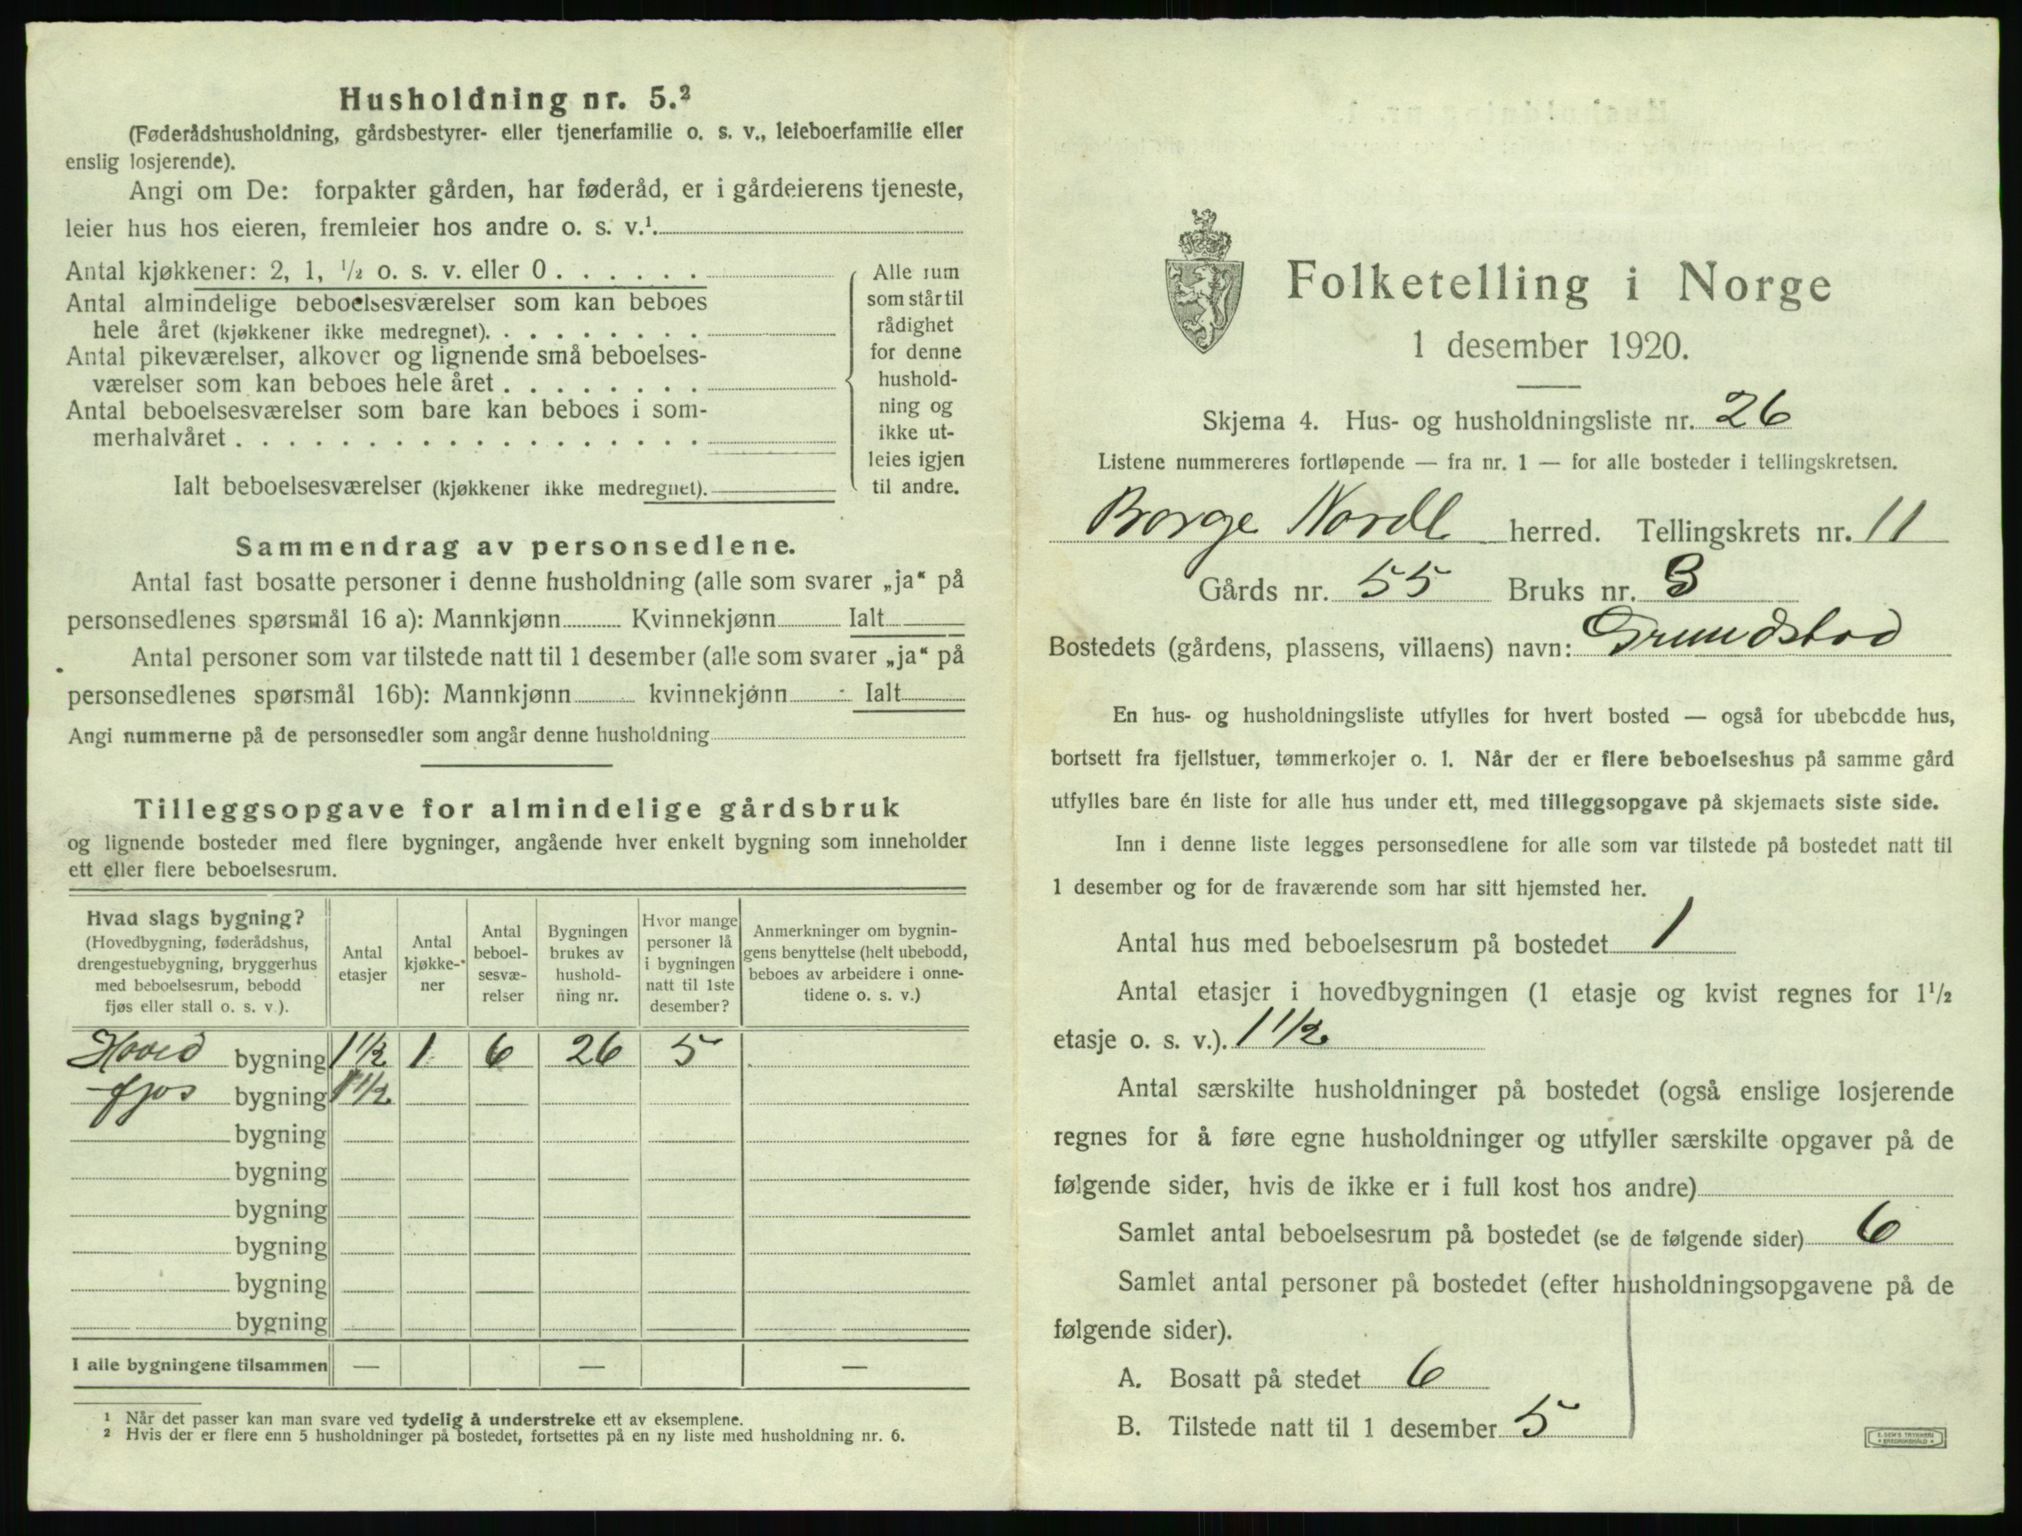 Husholdning nr. 5.²
(Føderådshusholdning, gårdsbestyrer- eller tjenerfamilie o. s. v., leieboerfamilie eller
enslig losjerende).
Angi om De: forpakter gården, har føderåd, er i gårdeierens tjeneste,
leier hus hos eieren, fremleier hos andre o. s. v.¹
Antal kjøkkener: 2, 1, ½ o. s. v. eller 0 . . . . . .
Antal almindelige beboelsesværelser som kan beboes
hele året (kjøkkener ikke medregnet). . . . . . . . .
Antal pikeværelser, alkover og lignende små beboelses-
værelser som kan beboes hele året . . . . . . . .
Antal beboelsesværelser som bare kan beboes i som-
merhalvåret . . . . . . . . . . . . . . . . . .
Ialt beboelsesværelser (kjøkkener ikke medregnet).
Alle rum
som står til
rådighet
for denne
hushold-
ning og
ikke ut-
leies igjen
til andre.
Sammendrag av personsedlene.
Antal fast bosatte personer i denne husholdning (alle som svarer „ja“ på
personsedlenes spørsmål 16 a): Mannkjønn Kvinnekjønn Ialt
Antal personer som var tilstede natt til 1 desember (alle som svarer „ja“ på
personsedlenes spørsmål 16b): Mannkjønn kvinnekjønn Ialt
Angi nummerne på de personsedler som angår denne husholdning
Tilleggsopgave for almindelige gårdsbruk
og lignende bosteder med flere bygninger, angående hver enkelt bygning som inneholder
ett eller flere beboelsesrum.
Hvad slags bygning?
(Hovedbygning, føderådshus,
drengestuebygning, bryggerhus
med beboelsesrum, bebodd
fjøs eller stall o. s. v.).
Antal
etasjer
Antal
kjøkke-
ner
Antal
beboel-
sesvæ-
relser
Bygningen
brukes av
hushold-
ning nr.
Hvor mange
personer lå
i bygningen
natt til 1ste
desember?
Anmerkninger om bygnin-
gens benyttelse (helt ubebodd,
beboes av arbeidere i onne-
tidene o. s. v.)
Hoved bygning 1½ 1 6 26 5
fjøs bygning 1½
bygning
bygning
bygning
bygning
bygning
bygning
I alle bygningene tilsammen — — —
¹ Når det passer kan man svare ved tydelig å understreke ett av eksemplene.
² Hvis der er flere enn 5 husholdninger på bostedet, fortsettes på en ny liste med husholdning nr. 6.
Folketelling i Norge
1 desember 1920.
Skjema 4. Hus- og husholdningsliste nr. 26
Listene nummereres fortløpende — fra nr. 1 — for alle bosteder i tellingskretsen.
Borge Nordl herred. Tellingskrets nr. 11
Gårds nr. 55 Bruks nr. 3
Bostedets (gårdens, plassens, villaens) navn: Grundstad
En hus- og husholdningsliste utfylles for hvert bosted — også for ubebodde hus,
bortsett fra fjellstuer, tømmerkojer o. l. Når der er flere beboelseshus på samme gård
utfylles bare én liste for alle hus under ett, med tilleggsopgave på skjemaets siste side.
Inn i denne liste legges personsedlene for alle som var tilstede på bostedet natt til
1 desember og for de fraværende som har sitt hjemsted her.
Antal hus med beboelsesrum på bostedet 1
Antal etasjer i hovedbygningen (1 etasje og kvist regnes for 1½
etasje o. s. v.). 1½
Antal særskilte husholdninger på bostedet (også enslige losjerende
regnes for å føre egne husholdninger og utfyller særskilte opgaver på de
følgende sider, hvis de ikke er i full kost hos andre)
Samlet antal beboelsesrum på bostedet (se de følgende sider) 6
Samlet antal personer på bostedet (efter husholdningsopgavene på de
følgende sider).
A. Bosatt på stedet 6
B. Tilstede natt til 1 desember 5